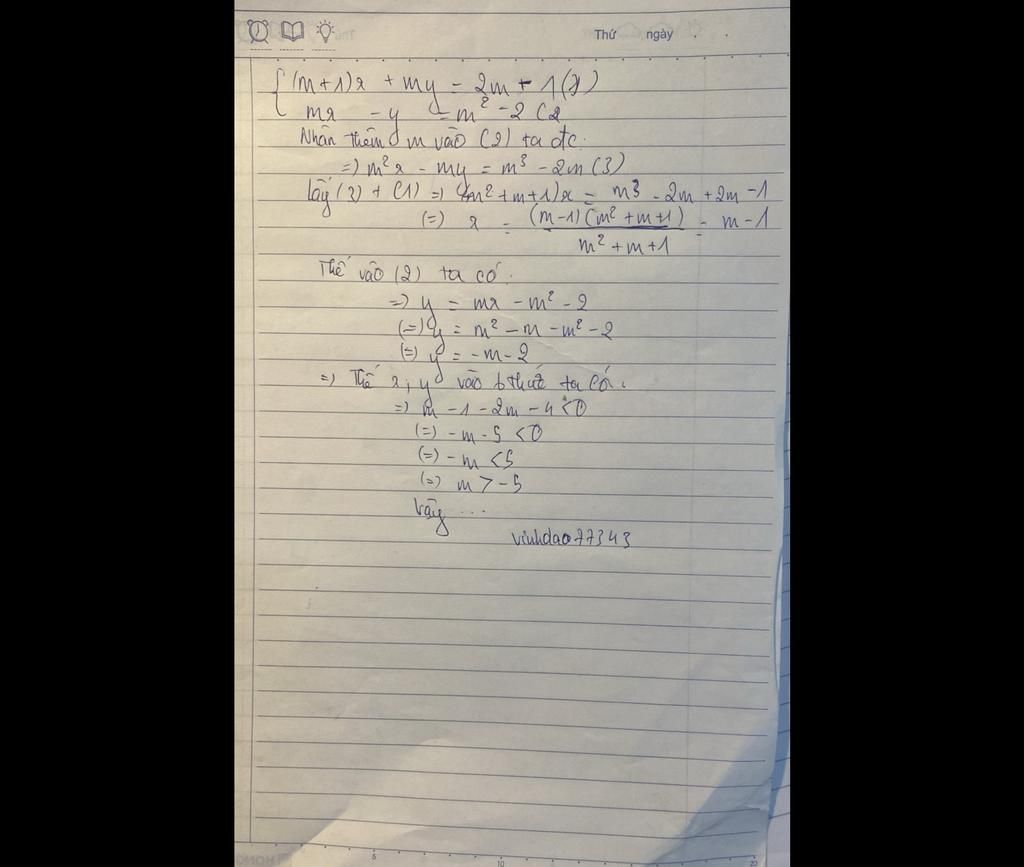 Thứ ngày . .
{ (m+1)x + my = 2m - 1 (1)
mx - y = m² - 2 (2
Nhân thêm m vào (2) ta đc.
=) m²x - my = m³ - 2m (3)
lấy (3) + (1) =) (m² + m + 1)x = m³ - 2m + 2m - 1
(=) x = (m-1)(m² + m + 1) / m² + m + 1 = m - 1
Thế vào (2) ta có.
=) y = mx - m² - 2
(=) y = m² - m - m² - 2
(=) y = -m - 2
=) Thế x, y vào bthức ta có.
=) m - 1 - 2m - 4 < 0
(=) - m - 5 < 0
(=) - m < 5
(=) m > -5
Vậy ...
vinhdao77343
5 10 20